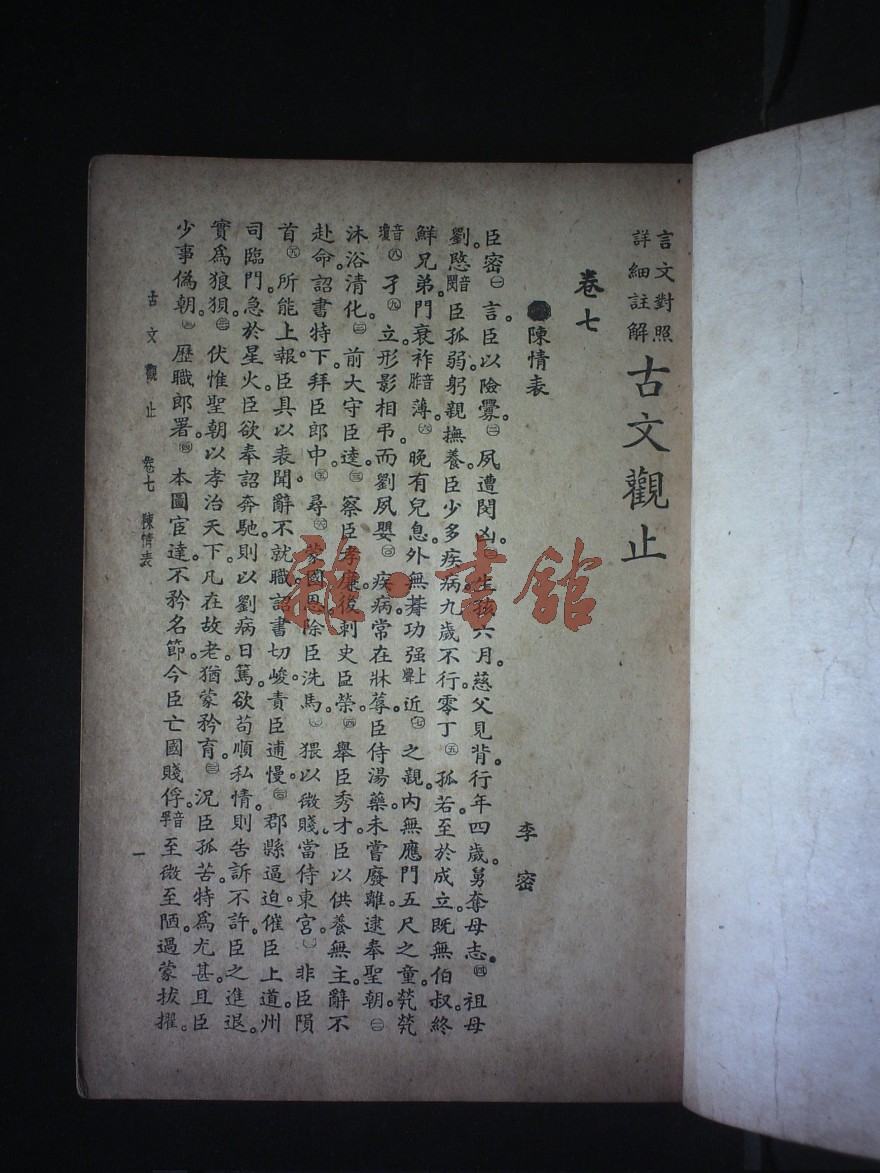 言文對照
詳細註解
古文觀止
卷七
陳情表
李密
臣密㊀言。臣以險釁。㊁夙遭閔凶。生孩六月。慈父見背。行年四歲。舅奪母志。㊃祖母
劉愍音閔臣孤弱。躬親撫養。臣少多疾病。九歲不行。零丁㊄孤若。至於成立。既無伯叔。終
鮮兄弟。門衰祚音胙薄。㊅晚有兒息。外無朞功强上聲近㊆之親。內無應門五尺之童。煢煢
音瓊㊇孑㊈立。形影相弔。而劉夙嬰疾病。常在牀蓐。臣侍湯藥。未嘗廢離。逮奉聖朝。
沐浴清化。前大守臣逵。察臣孝廉。後刺史臣榮。舉臣秀才。臣以供養無主。辭不
赴命。詔書特下。拜臣郎中。尋蒙國恩。除臣洗馬。猥以微賤。當侍東宮。非臣隕
首所能上報。臣具以表聞。辭不就職。詔書切峻。責臣逋慢。郡縣逼迫。催臣上道。州
司臨門。急於星火。臣欲奉詔奔馳。則以劉病日篤。欲苟順私情。則告訴不許。臣之進退。
實爲狼狽。伏惟聖朝以孝治天下。凡在故老。猶蒙矜育。況臣孤苦。特爲尤甚。且臣
少事僞朝。歷職郎署。本圖宦達。不矜名節。今臣亡國賤俘。音孚至微至陋。過蒙拔擢。
古文觀止 卷七 陳情表 一
雜·書館